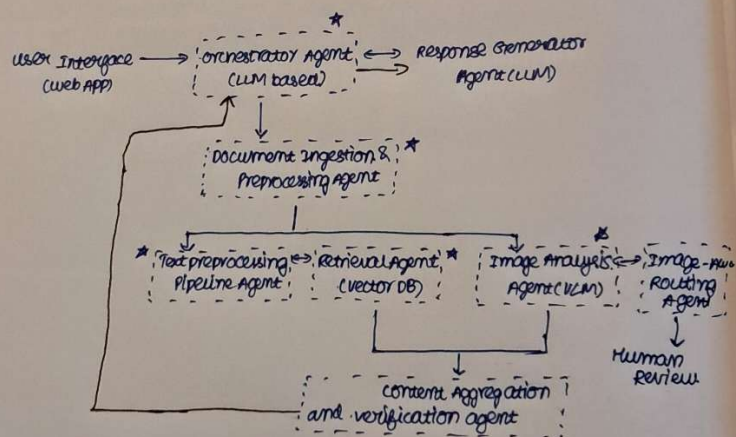 User Interface
(Web APP)
Orchestrator Agent
(LLM based)
Response Generator
Agent (LLM)
Document Ingestion &
Preprocessing Agent
Text preprocessing
Pipeline Agent
Retrieval Agent
(Vector DB)
Image Analysis
Agent (VLM)
Image-
Routing
Agent
Human
Review
Content Aggregation
and verification agent